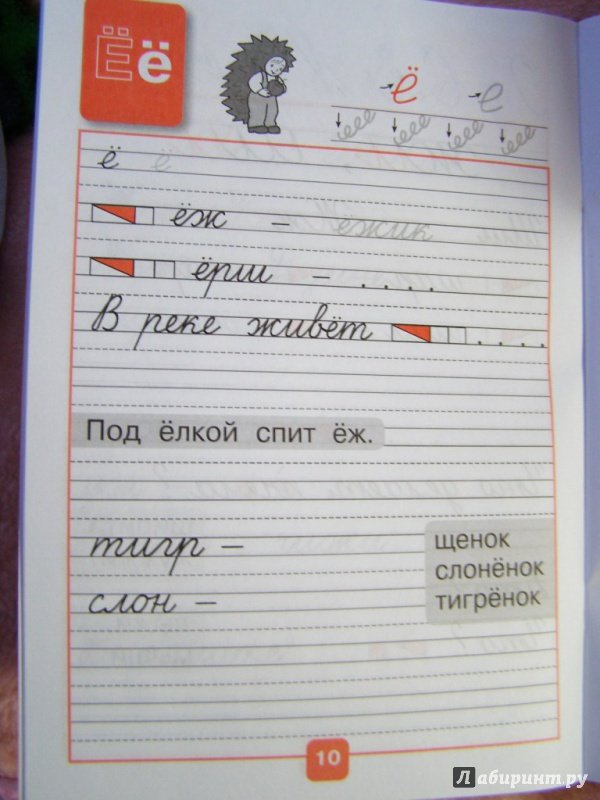 Ёё
ё е
ё ё
ёж – ёжик
ёрш – . . . .
В реке живёт . . . .
Под ёлкой спит ёж.
тигр –
слон –
щенок
слонёнок
тигрёнок
10
Лабиринт.ру